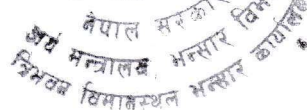 नेपाल सरकार
अर्थ मन्त्रालय
भन्सार
त्रिभुवन विमानस्थल भन्सार कार्यालय